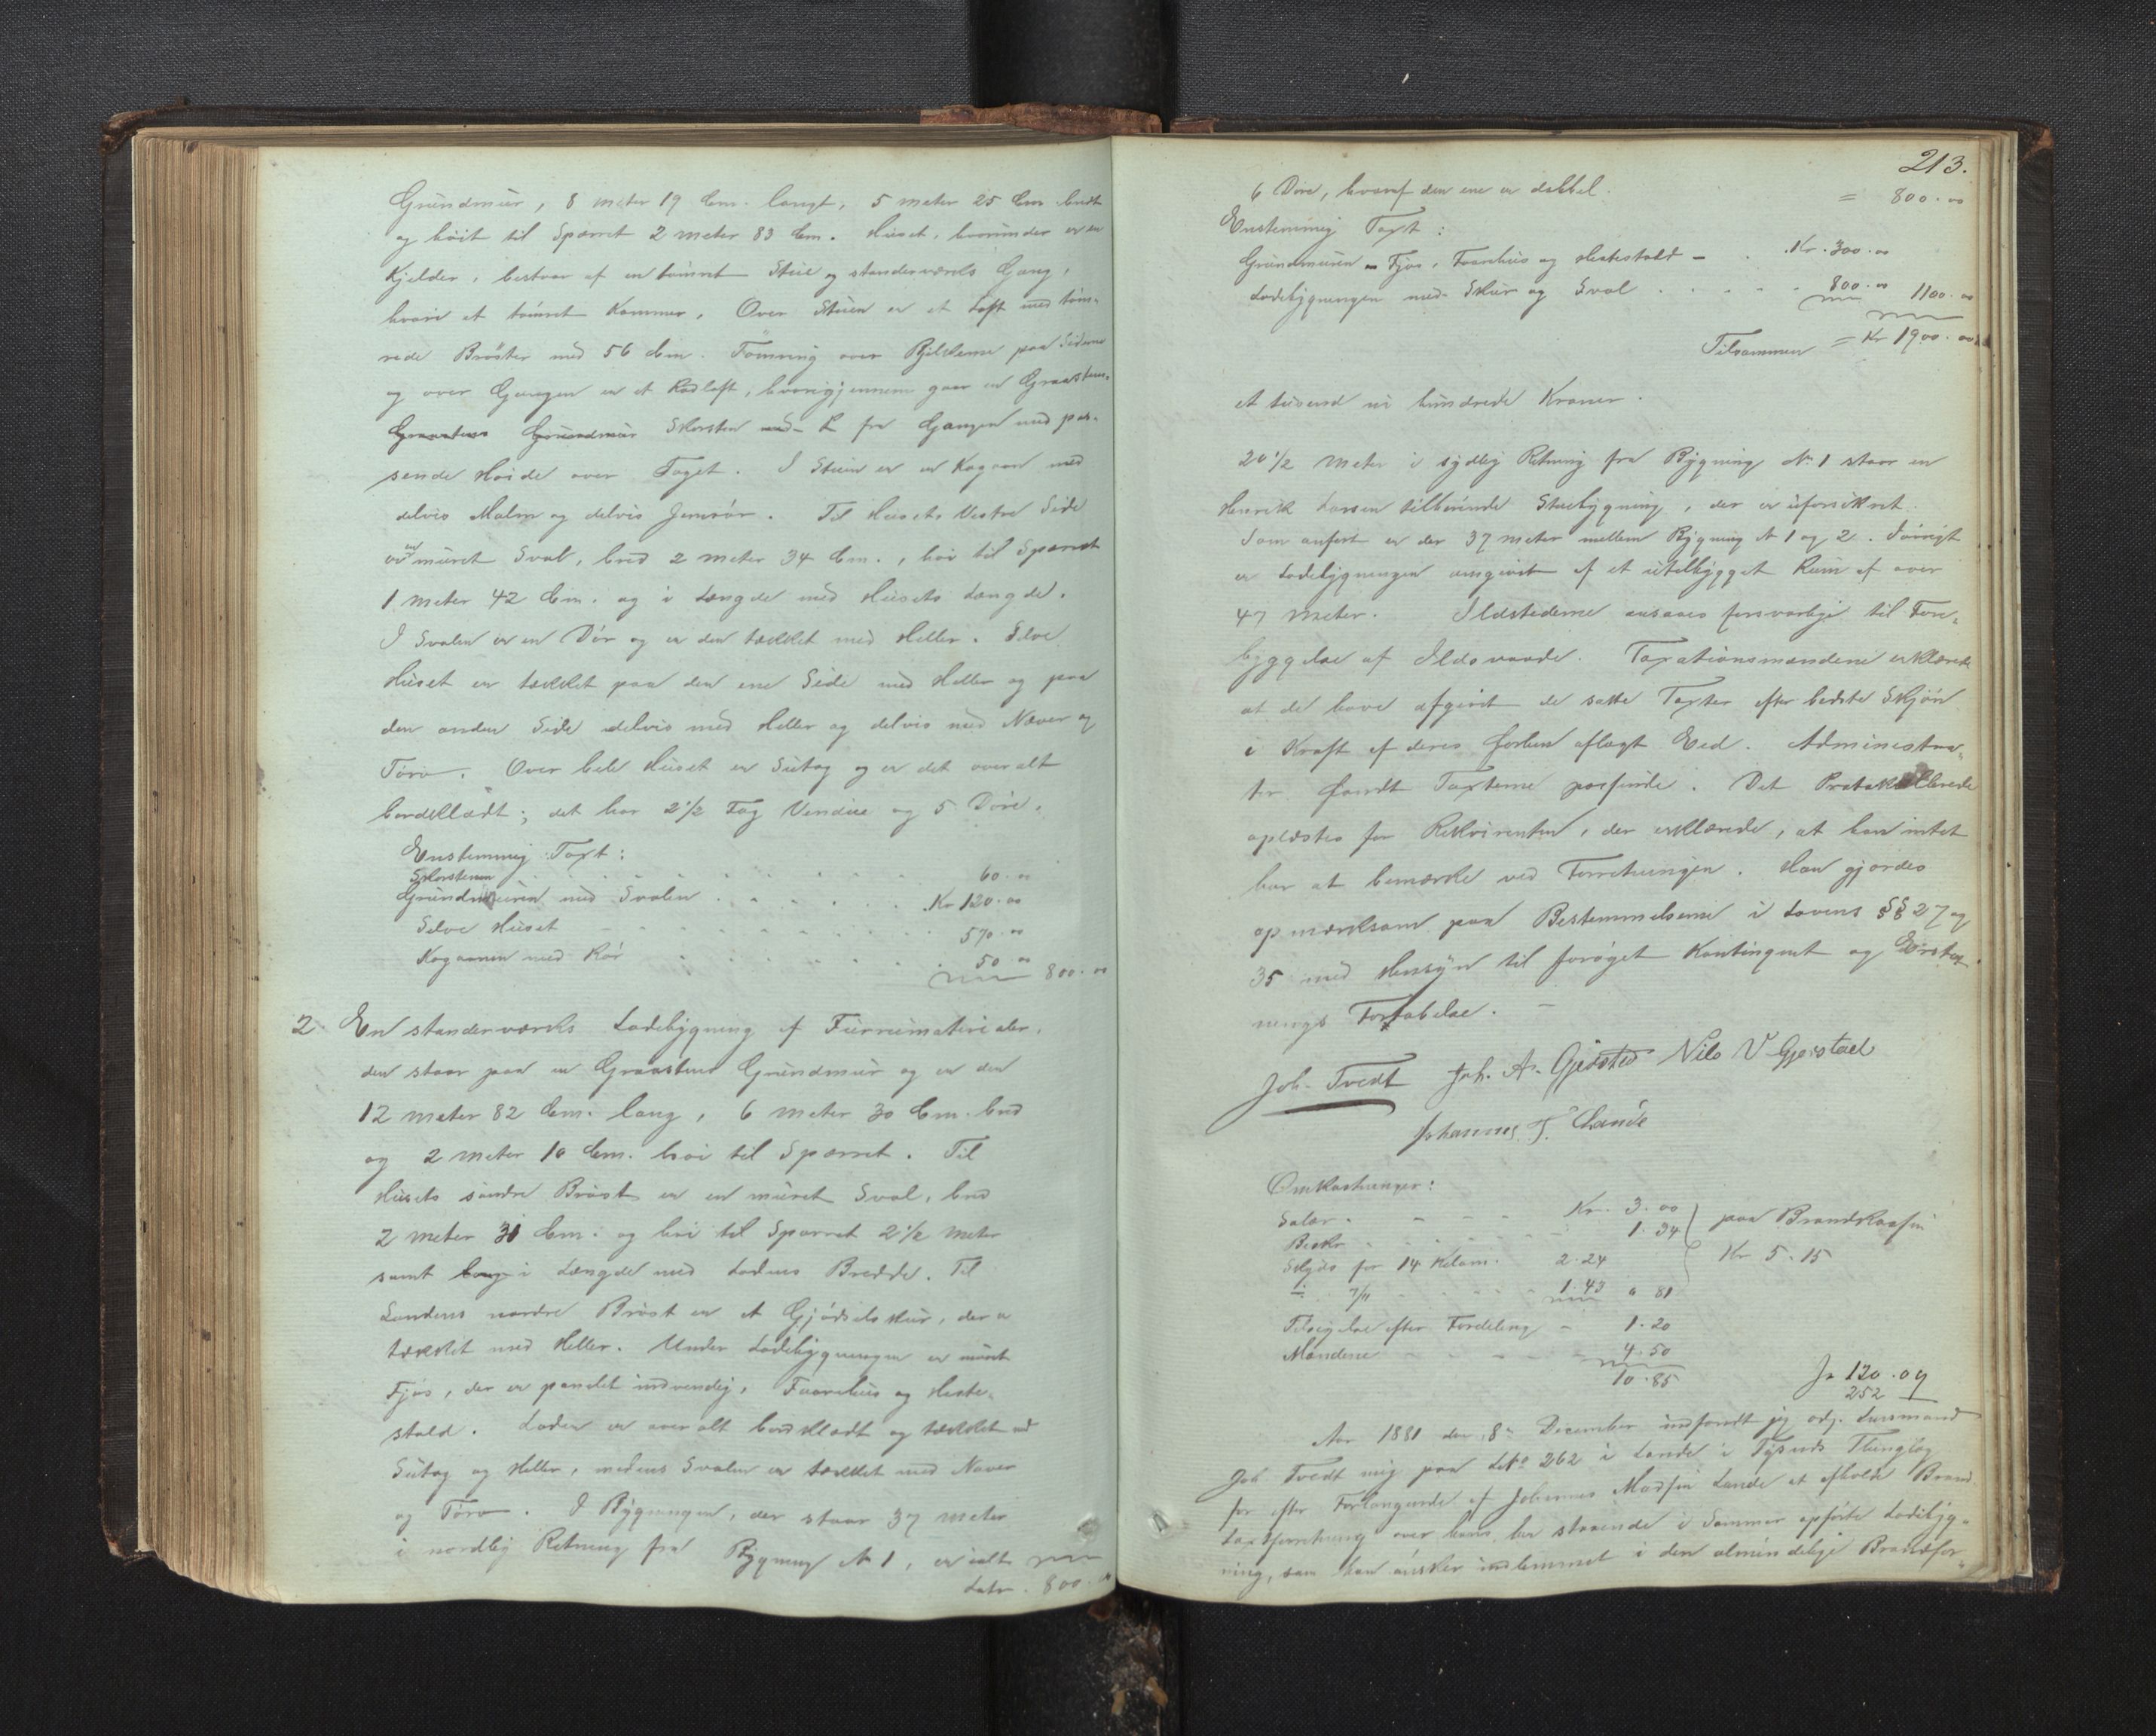 Grundmur, 8 meter 19 Cm. langt, 5 meter 25 Cm. bredt
og høit til Sparret 2 meter 83 Cm. Huset, hvorunder er en
Kjelder, bestaar af en tømret Stue og standerværks Gang,
hvori et tømret Kammer. Over Stuen er et Loft med tøm-
rede Brøster med 56 Cm. Tømring over Bjelkerne paa Siderne
og over Gangen er et Rødloft, hvorigjennem gaar en Graastens-
Graastens Grundmur Skorsten med fra Gangen med pas-
sende Høide over Taget. I Stuen er en Kogovn med
delvis Malm og delvis Jernrør. Til Husets Vestre Side
er en muret Sval, bred 2 meter 34 Cm., høi til Sparret
1 meter 42 Cm. og i Længde med Husets Længde.
I Svalen er en Dør og er den tækket med Heller. Selve
Huset er tækket paa den ene Side med Heller og paa
den anden Side delvis med Heller og delvis med Næver og
Torv. Over hele Huset er Sutag og er det overalt
bordklædt; det har 2 1/2 Fag Vindue og 5 Døre.
Enstemmig Taxt:
Skorstenen 60.00
Grundmuren med Svalen Kr 120.00
Selve Huset 570.00
Kogovnen med Rør 50.00 800.00
2. En standerværks Ladebygning af Furrumaterialer,
den staar paa en Graastens Grundmur og er den
12 meter 82 Cm. lang, 6 meter 30 Cm. bred
og 2 meter 10 Cm. høi til Sparret. Til
Husets søndre Brøst er en muret Sval, bred
2 meter 31 Cm. og høi til Sparret 2 1/2 meter
samt lang i Længde med Ladens Bredde. Til
Ladens nordre Brøst er et Gjødselskur, der er
tækket med Heller. Under Ladebygningen er muret
Fjøs, der er panelet indvendig, Faarehus og Heste-
stald. Laden er overalt bordklædt og tækket med
Sutag og Heller, medens Svalen er tækket med Næver
og Torv. I Bygningen, der staar 37 meter
i nordlig Retning fra Bygning No 1, er ialt
Latr. 800.00
213.
6 Døre, hvoraf den ene er dobbel. = 800.00
Enstemmig Taxt:
Grundmuren - Fjøs, Faarehus og Hestestald - Kr. 300.00
Ladebygningen med Skur og Sval 800.00 1100.00
Tilsammen = Kr 1900.00
et tusend ni hundrede Kroner.
20 1/2 meter i sydlig Retning fra Bygning No 1 staar en
Henrik Larsen tilhørende Stuebygning, der er uforsikret.
Som anført er der 37 meter mellem Bygning No 1 og 2. Forøvrigt
er Ladebygningen omgivet af et utilbygget Rum af over
47 meter. Ildstederne ansaaes forsvarlige til Fore-
byggelse af Ildsvaade. Taxationsmændene erklærede
at de have afgivet de satte Taxter efter bedste Skjøn
i Kraft af deres forhen aflagt Eed. Administra-
tor fandt Taxterne passende. Det Protokollerede
oplæstes for Rekvirenten, der erklærede, at han intet
har at bemærke ved Forretningen. Han gjordes
opmærksom paa Bestemmelserne i Lovens §§ 27 og
35 med Hensyn til forøget Kontingent og Erstat-
nings Fortabelse.
Joh. Tvedt Joh. A. Gjersted Nils V Gjerstad
Johannes T. Lande
Omkostninger:
Salær Kr. 3.00
Beskr 1.34 } paa Brandkassen
Skyds for 14 Kilom. 2.24 Kr 5.15
÷ 7/11 1.43 " 81
Tilsigelse efter Fordeling - 1.20
Mændene 4.50
10.85
Jr 120.09
252
Aar 1881 den 8de December indfandt jeg odj. Lensmand
Joh Tvedt mig paa LNo 262 i Lande i Tysnes Thinglag
for efter Forlangende af Johannes Madsen Lande at afholde Brand-
taxtforretning over hans her staaende i Sommer opførte Ladebyg-
ning, som han ønsker indlemmet i den almindelige Brandfor-